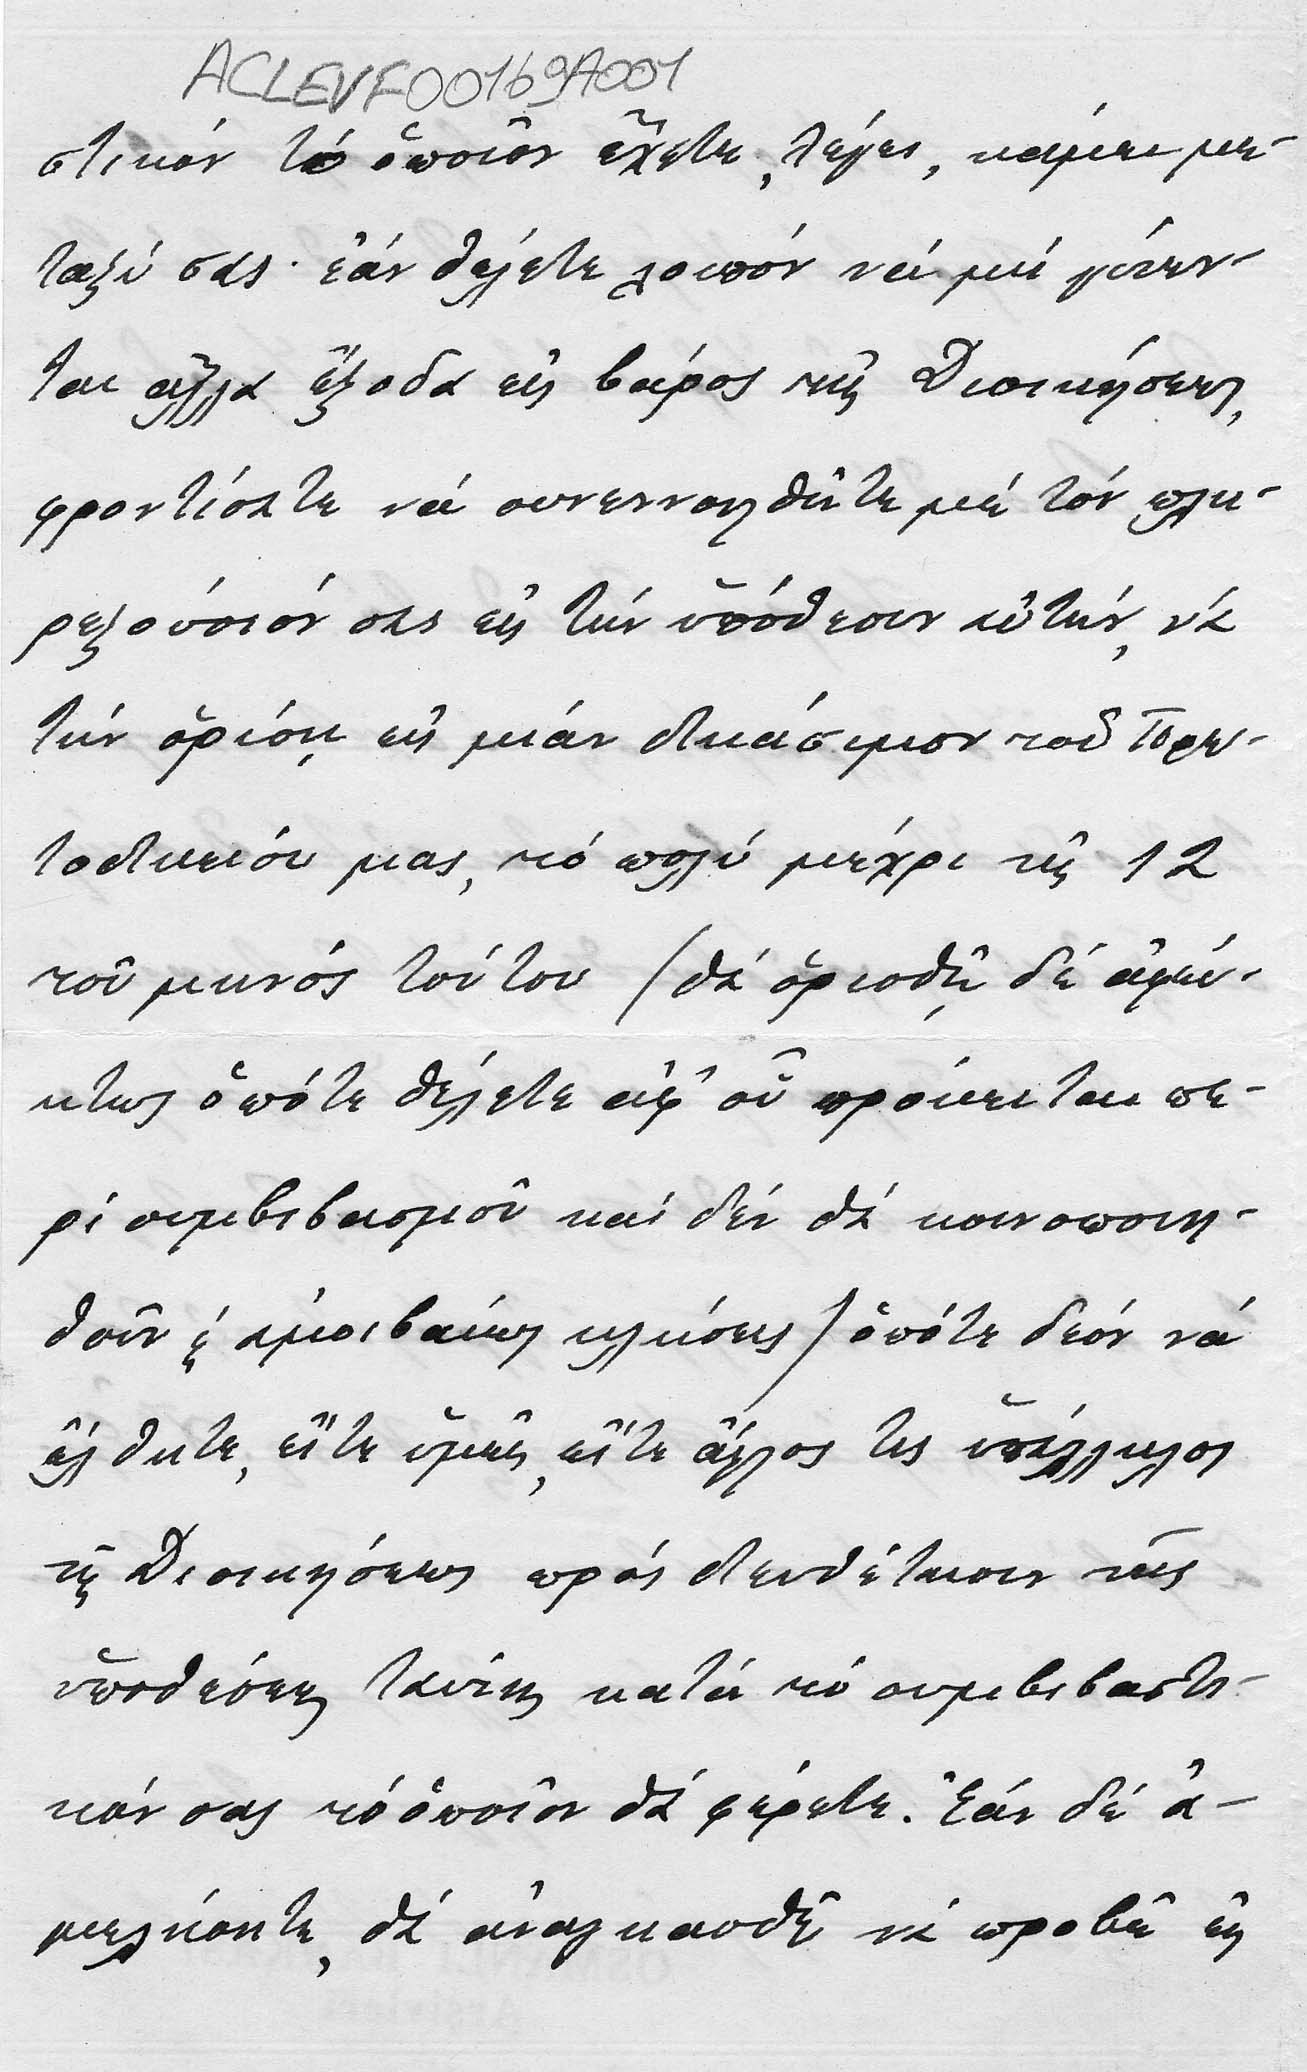 ACLEVF00169A001
στικόν τό ὁποῖον ἔχετε, λέγει, κάμει με-
ταξύ σας· ἐάν θέλετε λοιπόν νά μή γίνων-
ται ἄλλα ἔξοδα εἰς βάρος τῆς Διοικήσεως,
φροντίσατε νά συνεννοηθῆτε μέ τόν πλη-
ρεξούσιόν σας εἰς τήν ὑπόθεσιν αὐτήν, νά
τήν ὁρίσῃ εἰς μίαν δικάσιμον τοῦ Πρω-
τοδικείου μας, τό πολύ μέχρι τῆς 12
τοῦ μηνός τούτου (θά ὁρισθῇ δέ ἀφεύ-
κτως ὁπότε θέλετε ἀφ' οὗ πρόκειται πε-
ρί συμβιβασμοῦ καί δέν θά κοινοποιη-
θοῦν ἡ ἀμοιβαίως κλήσεις) ὁπότε δέον νά
ἔλθητε, εἴτε ὑμεῖς, εἴτε ἄλλος τις ὑπάλληλος
τῆς Διοικήσεως πρός διευθέτησιν τῆς
ὑποθέσεως ταύτης κατά τό συμβιβαστι-
κόν σας τό ὁποῖον θά φέρετε. Ἐάν δέ ἀ-
μελήσητε, θά ἀναγκασθῇ νά προβῇ εἰς